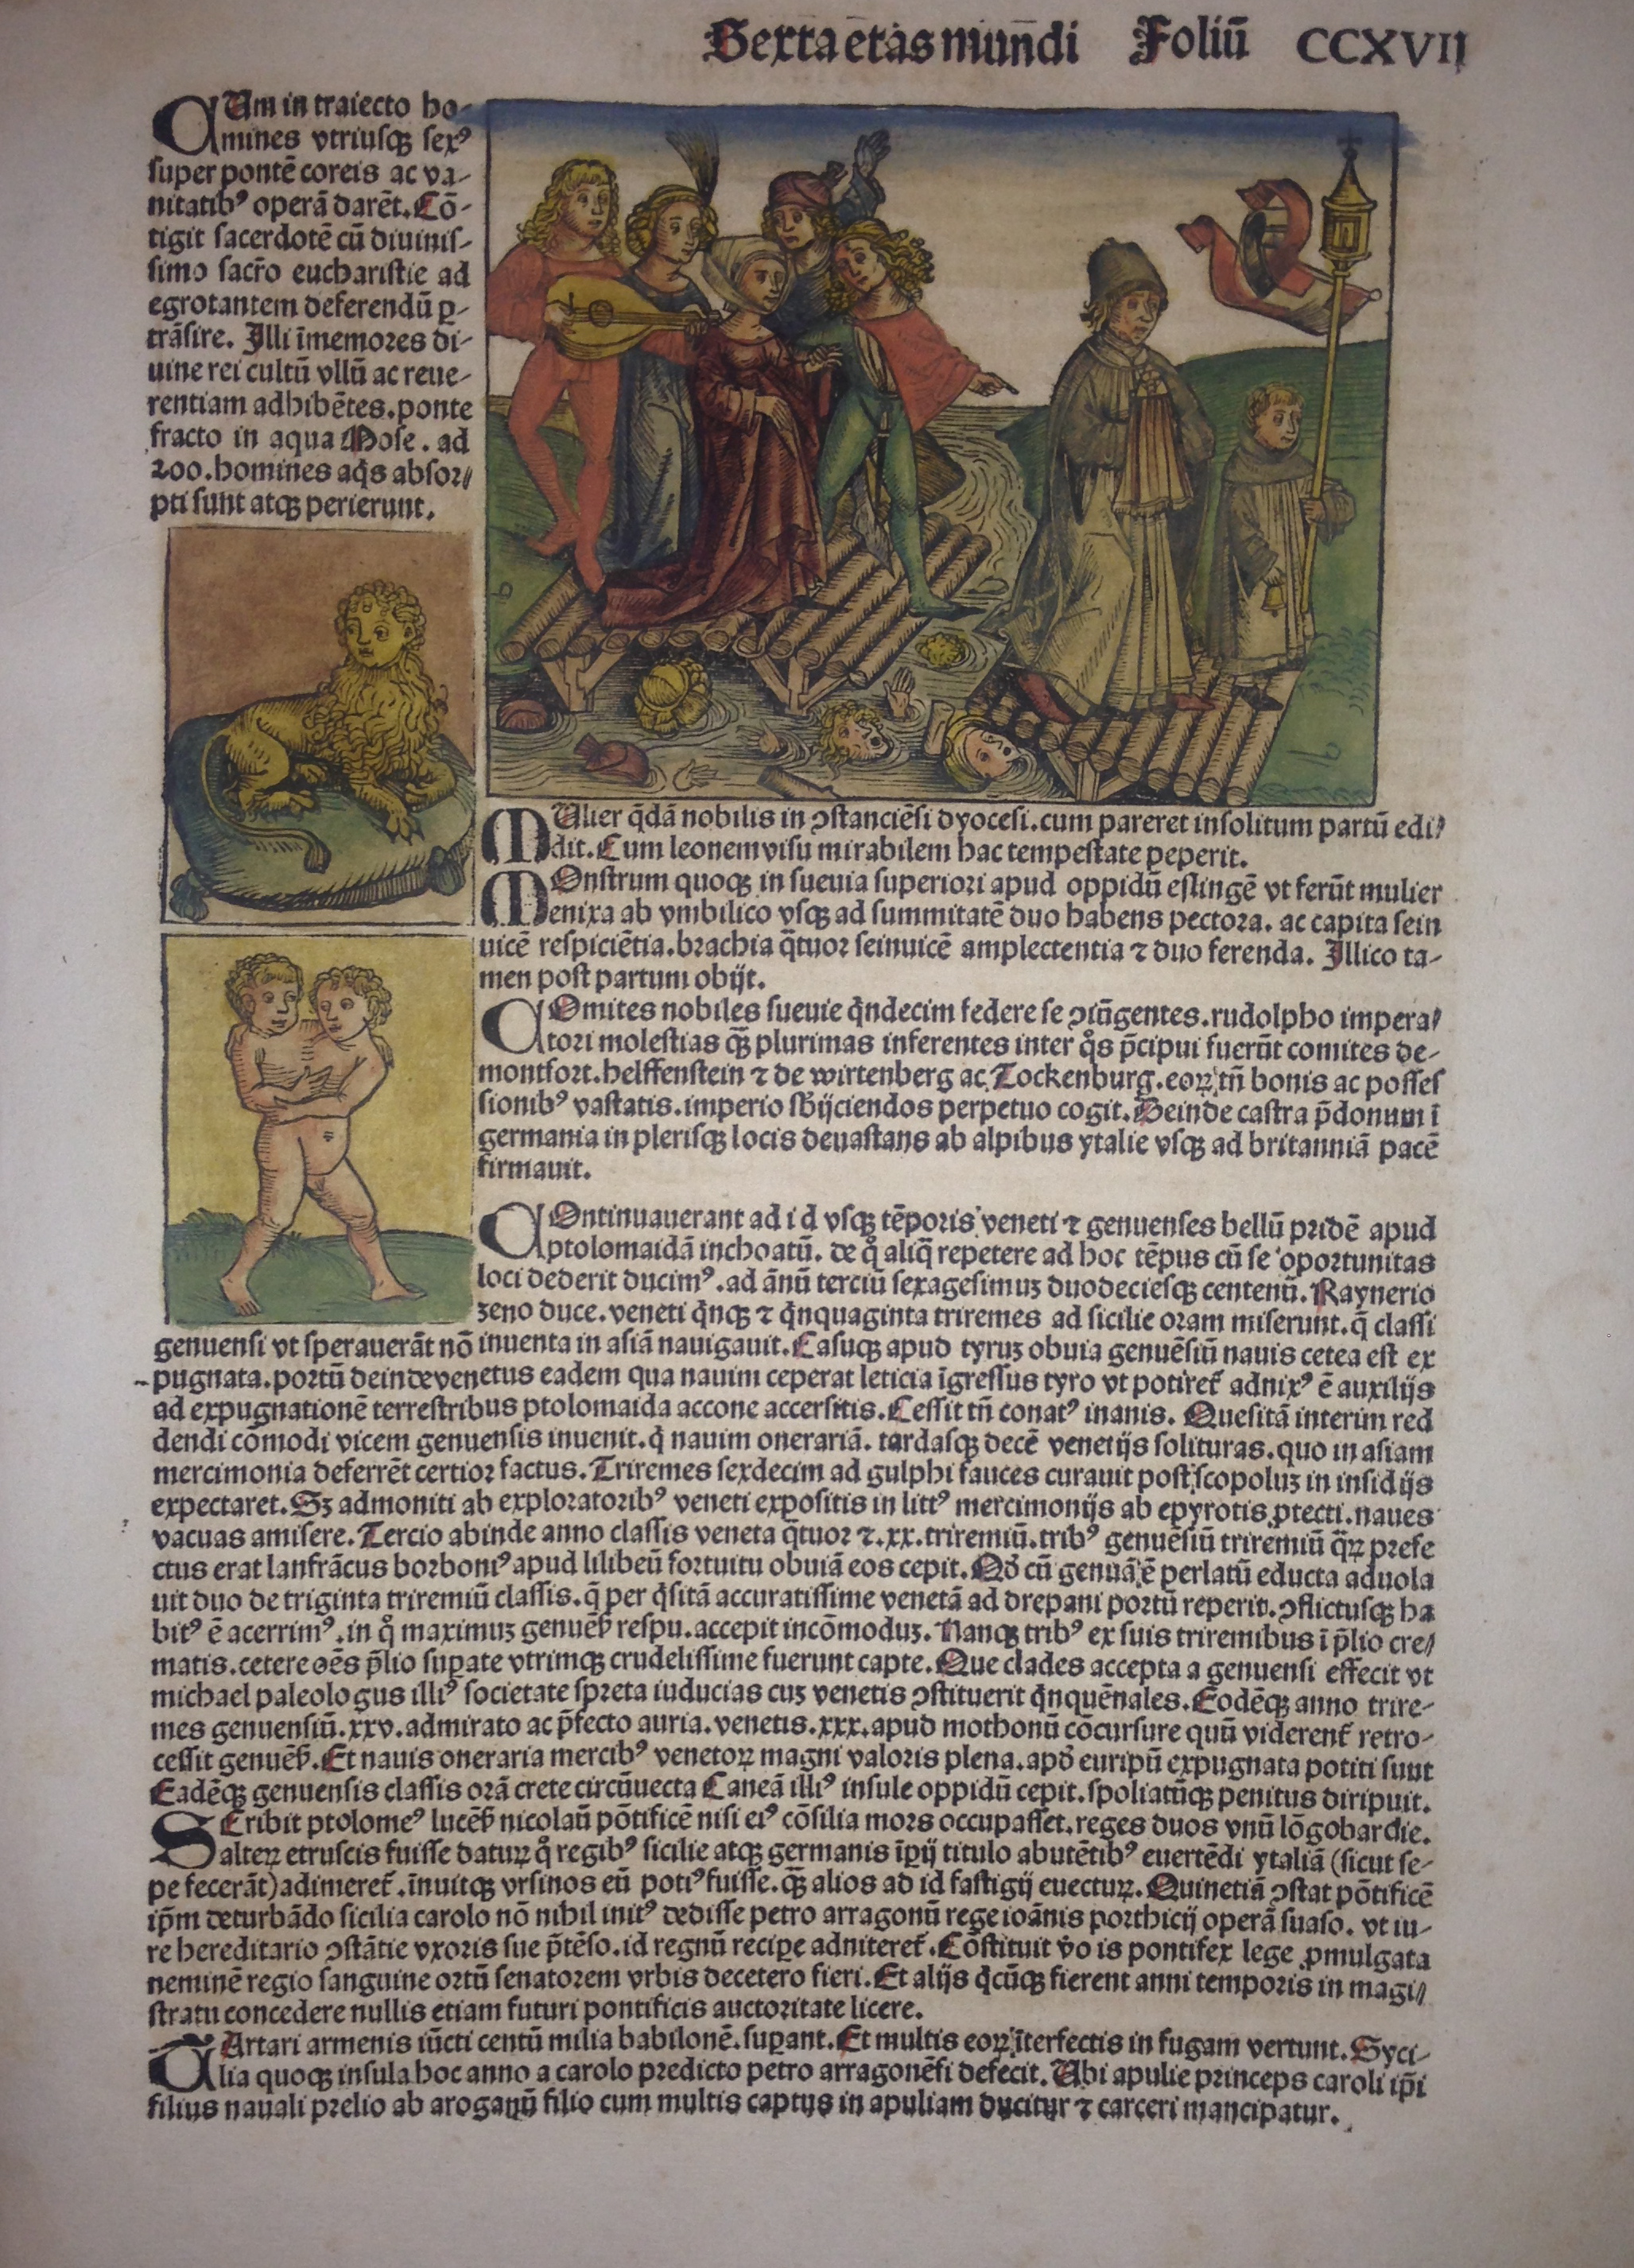 Sexta etas mundi Foliū CCXVII
CUm in traiecto ho-
mines vtriusqꝫ sexꝰ
super pontē coreis ac va-
nitatibꝰ operā darēt. Cō-
tigit sacerdotē cū diuinis-
simo sacr̄o eucharistie ad
egrotantem deferendū ꝑ-
trāsire. Illi īmemores di-
uine rei cultū vllū ac reue-
rentiam adhibētes. ponte
fracto in aqua Mose. ad
200. homines aq̄s absor/
pti sunt atqꝫ perierunt.
MUlier q̄dā nobilis in ꝯstanciēsi dyocesi. cum pareret insolitum partū edi/
dit. Cum leonem visu mirabilem hac tempestate peperit.
MOnstrum quoqꝫ in sueuia superiori apud oppidū eslingē vt ferūt mulier
enixa ab vmbilico vsqꝫ ad summitatē duo habens pectora. ac capita sein
uicē respiciētia. brachia q̄tuor seinuicē amplectentia ⁊ duo ferenda. Illico ta-
men post partum obijt.
COmites nobiles sueuie q̄ndecim federe se ꝯiūgentes. rudolpho impera/
tori molestias qꝫ plurimas inferentes inter q̊s p̄cipui fuerūt comites de-
montfort. helffenstein ⁊ de wirtenberg ac Tockenburg. eoꝝ tn̄ bonis ac posses
sionibꝰ vastatis. imperio sb̄ijciendos perpetuo cogit. Deinde castra p̄donum ī
germania in plerisqꝫ locis deuastans ab alpibus ytalie vsqꝫ ad britanniā pacē
firmauit.
COntinuauerant ad id vsqꝫ tēporis veneti ⁊ genuenses bellū pridē apud
ptolomaidā inchoatū. de q̊ aliq̄ repetere ad hoc tēpus cū se oportunitas
loci dederit ducimꝰ. ad ānū terciū sexagesimuꝫ duodeciesqꝫ centenū. Raynerio
zeno duce. veneti q̄nqꝫ ⁊ q̄nquaginta triremes ad sicilie oram miserunt. q̄ classi
genuensi vt sperauerāt nō inuenta in asiā nauigauit. Casuqꝫ apud tyruꝫ obuia genuēsiū nauis cetea est ex
pugnata. portū deinde venetus eadem qua nauim ceperat leticia īgressus tyro vt potiret̄ adnixꝰ ē auxilijs
ad expugnationē terrestribus ptolomaida accone accersitis. Cessit tn̄ conatꝰ inanis. Quesitā interim red
dendi cōmodi vicem genuensis inuenit. q̄ nauim onerariā. tardasqꝫ decē venetijs solituras. quo in asiam
mercimonia deferrēt certior factus. Triremes sexdecim ad gulphi fauces curauit post scopoluꝫ in insidijs
expectaret. Sꝫ admoniti ab exploratoribꝰ veneti expositis in littꝰ mercimonijs ab epyrotis ꝓtecti. naues
vacuas amisere. Tercio abinde anno classis veneta q̄tuor ⁊. xx. triremiū. tribꝰ genuēsiū triremiū q̄ꝝ prefe
ctus erat lanfrācus borboniꝰ apud lilibeū fortuitu obuiā eos cepit. Qd̄ cū genuā ē perlatū educta aduola
uit duo de triginta triremiū classis. q̄ per q̄sitā accuratissime venetā ad drepani portū reperit. ꝯflictusqꝫ ha
bitꝰ ē acerrimꝰ. in q̊ maximuꝫ genuēs̄ respu. accepit incōmoduꝫ. Nanqꝫ tribꝰ ex suis triremibus ī p̄lio cre/
matis. cetere oēs p̄lio suꝑate vtrimqꝫ crudelissime fuerunt capte. Que clades accepta a genuensi effecit vt
michael paleologus illiꝰ societate spreta iuducias cuꝫ venetis ꝯstituerit q̄nquēnales. Eodēqꝫ anno trire-
mes genuensiū. xxv. admirato ac p̄fecto auria. venetis. xxx. apud mothonū cōcursure quū viderent̄ retro-
cessit genuēs̄. Et nauis oneraria mercibꝰ venetoꝝ magni valoris plena. apd̄ euripū expugnata potiti sunt
Eadēqꝫ genuensis classis orā crete circūuecta Caneā illiꝰ insule oppidū cepit. spoliatūqꝫ penitus diripuit.
SCribit ptolomeꝰ lucēs̄ nicolaū pōtificē nisi eiꝰ cōsilia mors occupasset. reges duos vnū lōgobardie.
alteꝝ etruscis fuisse datuꝝ q̊ regibꝰ sicilie atqꝫ germanis īꝑij titulo abutētibꝰ euertēdi ytaliā (sicut se-
pe fecerāt) adimeret̄. īnuitqꝫ vrsinos eū potiꝰ fuisse. qꝫ alios ad id fastigij euectuꝝ. Quinetiā ꝯstat pōtificē
ip̄m deturbādo sicilia carolo nō nihil initꝰ dedisse petro arragonū rege ioānis porthicij operā suaso. vt iu-
re hereditario ꝯstātie vxoris sue p̄tēso. id regnū reciꝑe adniteret̄. Cōstituit v̊o is pontifex lege ꝓmulgata
neminē regio sanguine ortū senatorem vrbis decetero fieri. Et alijs q̄cūqꝫ fierent anni temporis in magi/
stratu concedere nullis etiam futuri pontificis auctoritate licere.
TArtari armenis iūcti centū milia babilonē. suꝑant. Et multis eoꝝ īterfectis in fugam vertunt. Syci-
lia quoqꝫ insula hoc anno a carolo predicto petro arragonēsi defecit. Ubi apulie princeps caroli ip̄i
filius nauali prelio ab aroganū filio cum multis captus in apuliam ducitur ⁊ carceri mancipatur.